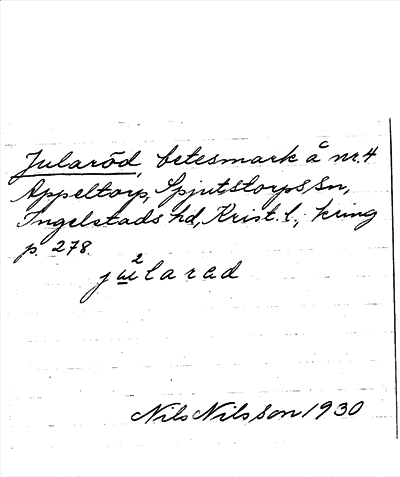 Jularöd, betesmark å nr. 4
Appeltorp, Spjutstorps sn,
Ingelstads hd, Krist. l., kring
p. 278.
júı²larad
Nils Nilsson 1930